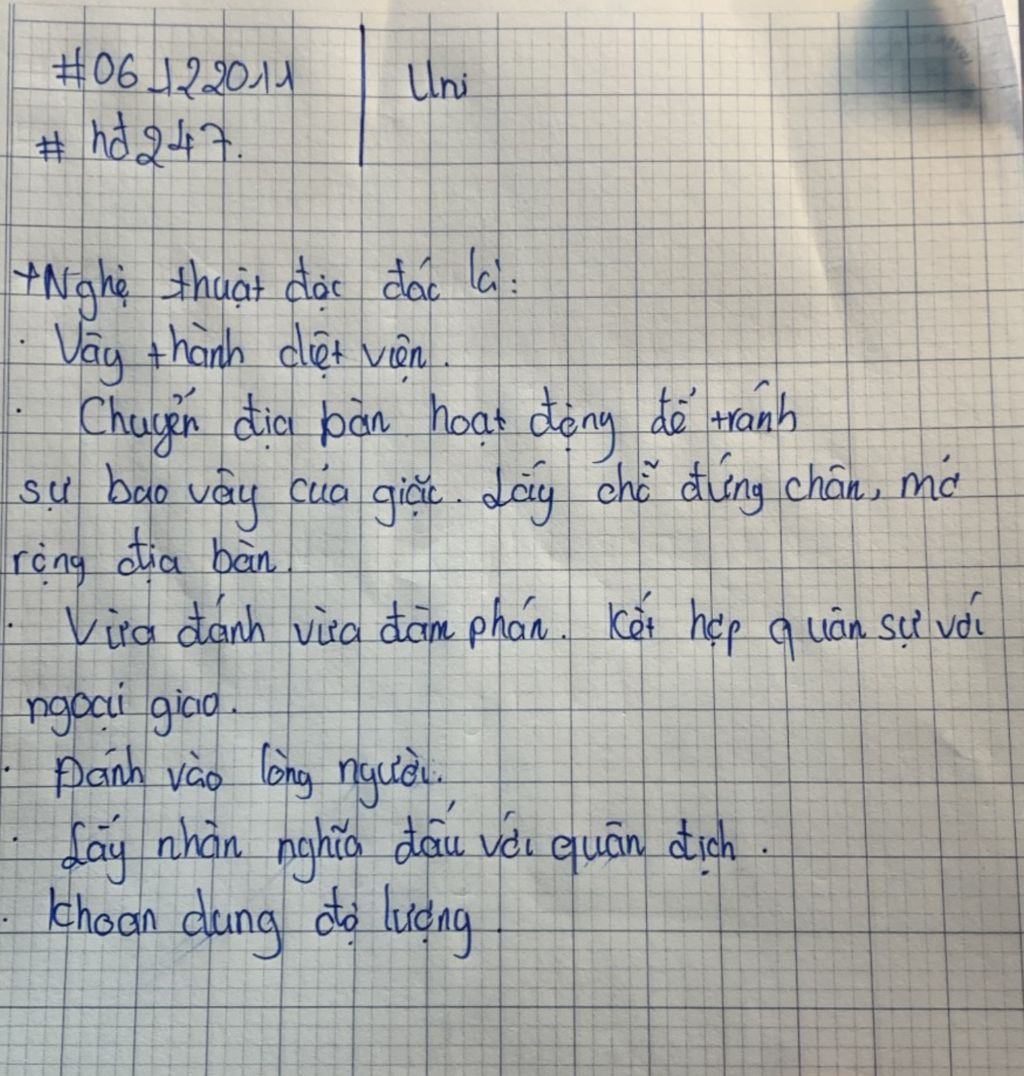 #06122011 | Uni
# hđ247.
+Nghệ thuật độc đác là:
· Vây thành diệt viện.
· Chuyển địa bàn hoạt động để tránh
sự bao vây của giặc. Lấy chỗ đứng chân, mở
rộng địa bàn.
· Vừa đánh vừa đàm phán. Kết hợp quân sự với
ngoại giao.
· Đánh vào lòng người.
· Lấy nhân nghĩa đấu với quân địch.
· Khoan dung độ lượng.